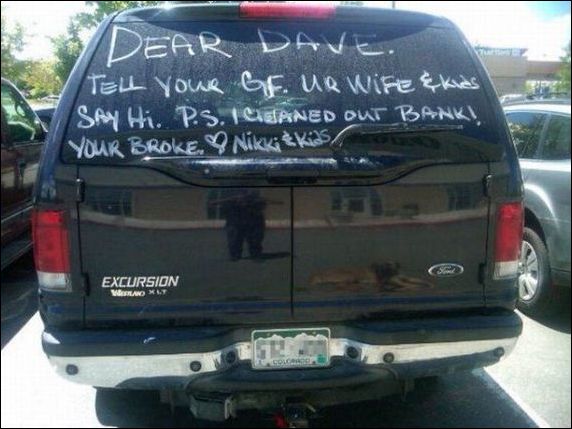 DEAR DAVE.
TELL YOUR GF. UR WIFE & KIDS
SAY HI. P.S. I CLEANED OUT BANK!
YOUR BROKE. ♡ NIKKI & KIDS
EXCURSION
XLT
Ford
COLORADO